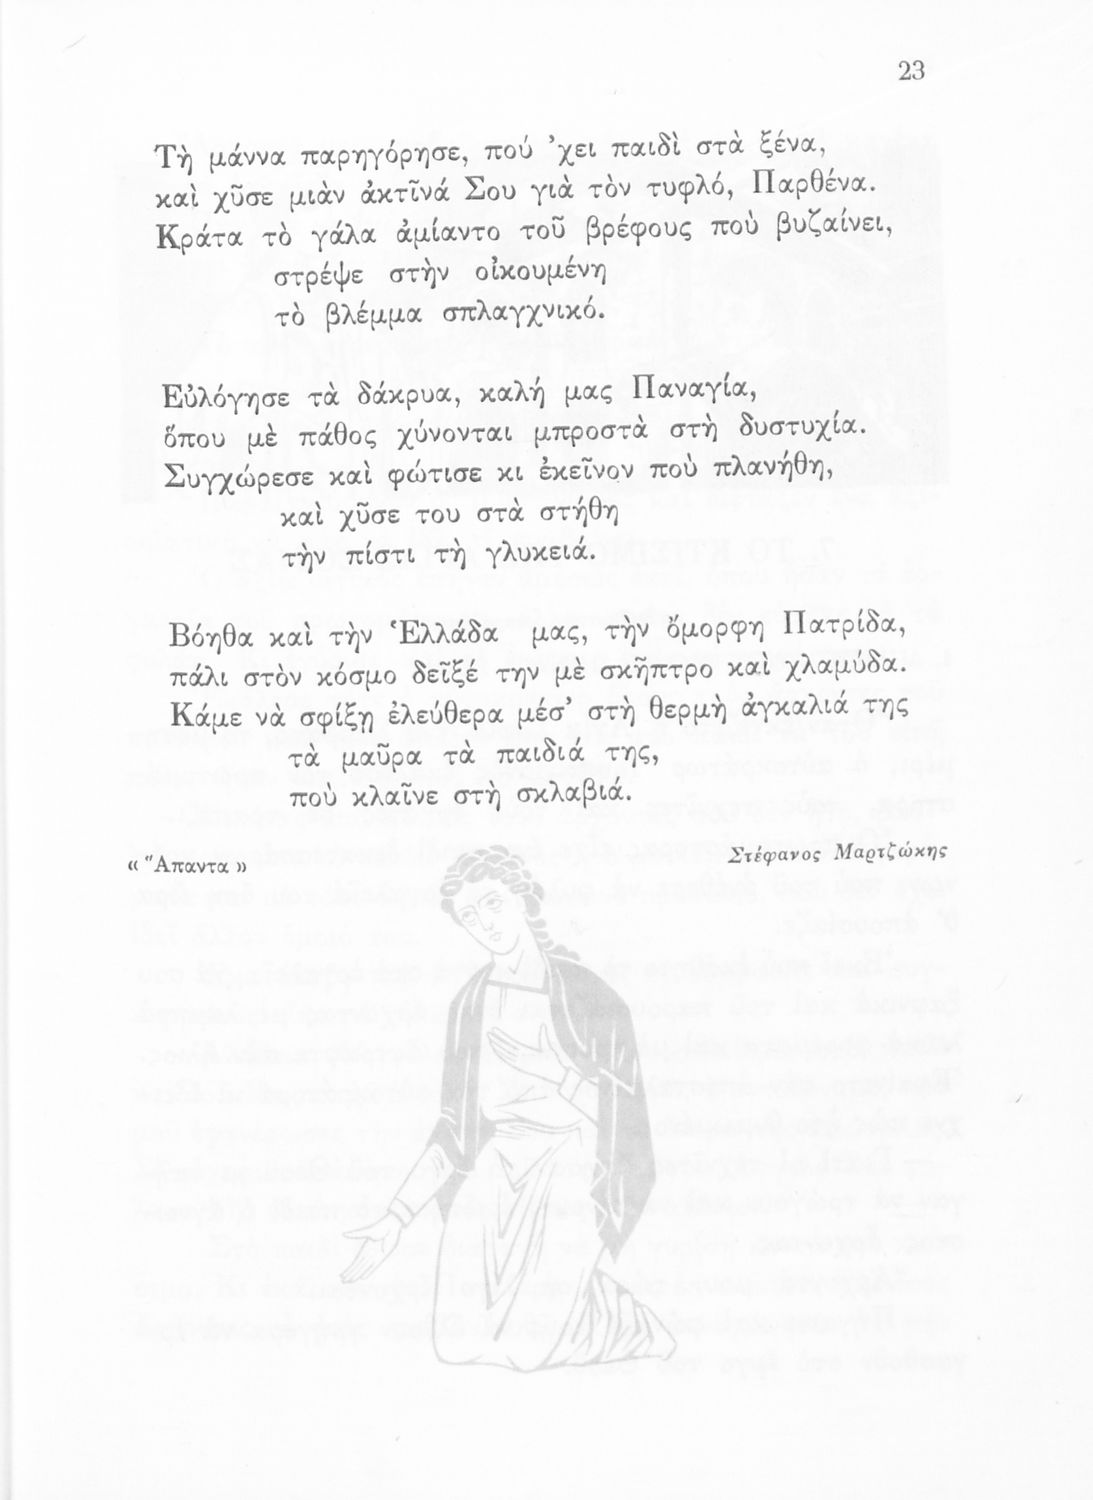 23
Τὴ μάννα παρηγόρησε, πού ’χει παιδὶ στὰ ξένα,
καὶ χῦσε μιὰν ἀκτῖνά Σου γιὰ τὸν τυφλό, Παρθένα.
Κράτα τὸ γάλα ἀμίαντο τοῦ βρέφους ποὺ βυζαίνει,
στρέψε στὴν οἰκουμένη
τὸ βλέμμα σπλαγχνικό.
Εὐλόγησε τὰ δάκρυα, καλή μας Παναγία,
ὅπου μὲ πάθος χύνονται μπροστὰ στὴ δυστυχία.
Συγχώρεσε καὶ φώτισε κι ἐκεῖνον ποὺ πλανήθη,
καὶ χῦσε του στὰ στήθη
τὴν πίστι τὴ γλυκειά.
Βόηθα καὶ τὴν Ἑλλάδα μας, τὴν ὄμορφη Πατρίδα,
πάλι στὸν κόσμο δεῖξέ την μὲ σκῆπτρο καὶ χλαμύδα.
Κάμε νὰ σφίξῃ ἐλεύθερα μέσ’ στὴ θερμὴ ἀγκαλιά της
τὰ μαῦρα τὰ παιδιά της,
ποὺ κλαῖνε στὴ σκλαβιά.
« Ἅπαντα » Στέφανος Μαρτζώκης